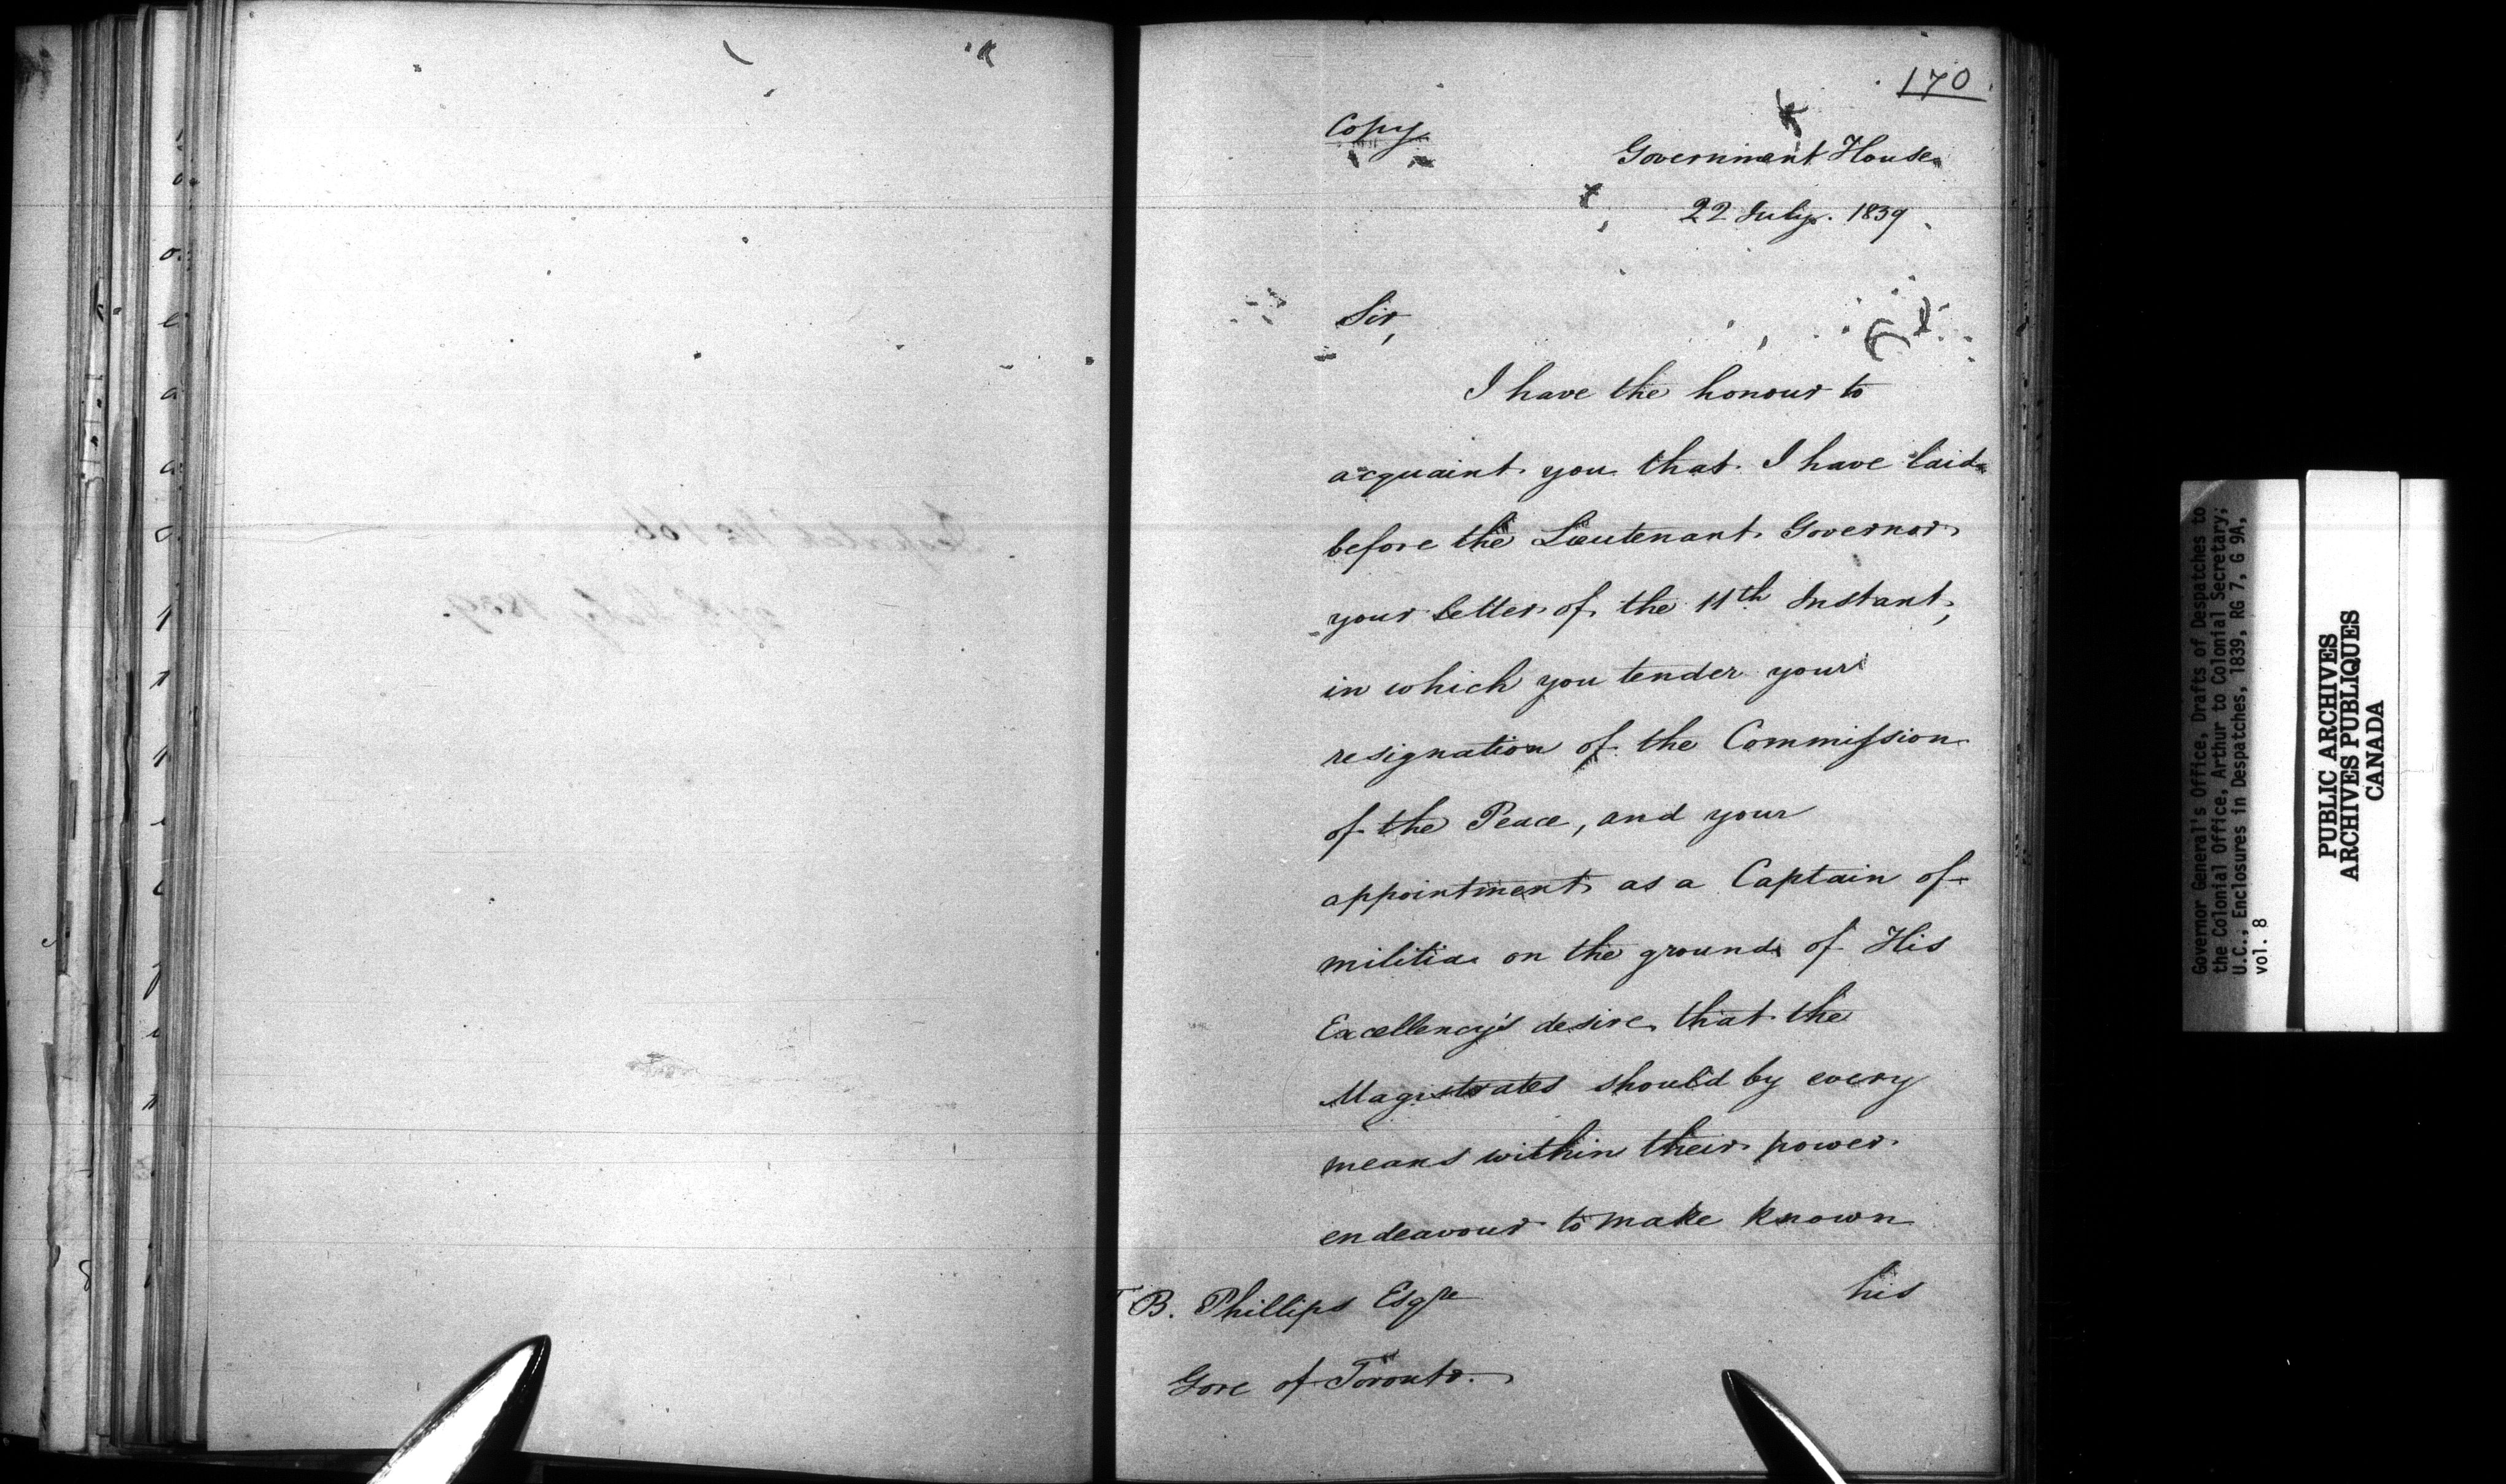 170
Copy
Government House
22 July. 1839
Sir,
I have the honour to
acquaint you that I have laid
before the Lieutenant Governor
your letter of the 11th Instant,
in which you tender your
resignation of the Commission
of the Peace, and your
appointment as a Captain of
militia on the grounds of His
Excellency's desire that the
Magistrates should by every
means within their power
endeavour to make known
his
B. Phillips Esqre
Gore of Toronto.
Governor General's Office, Drafts of Despatches to
the Colonial Office, Arthur to Colonial Secretary;
U.C., Enclosures in Despatches, 1839, RG 7, G 9A,
vol. 8
PUBLIC ARCHIVES
ARCHIVES PUBLIQUES
CANADA